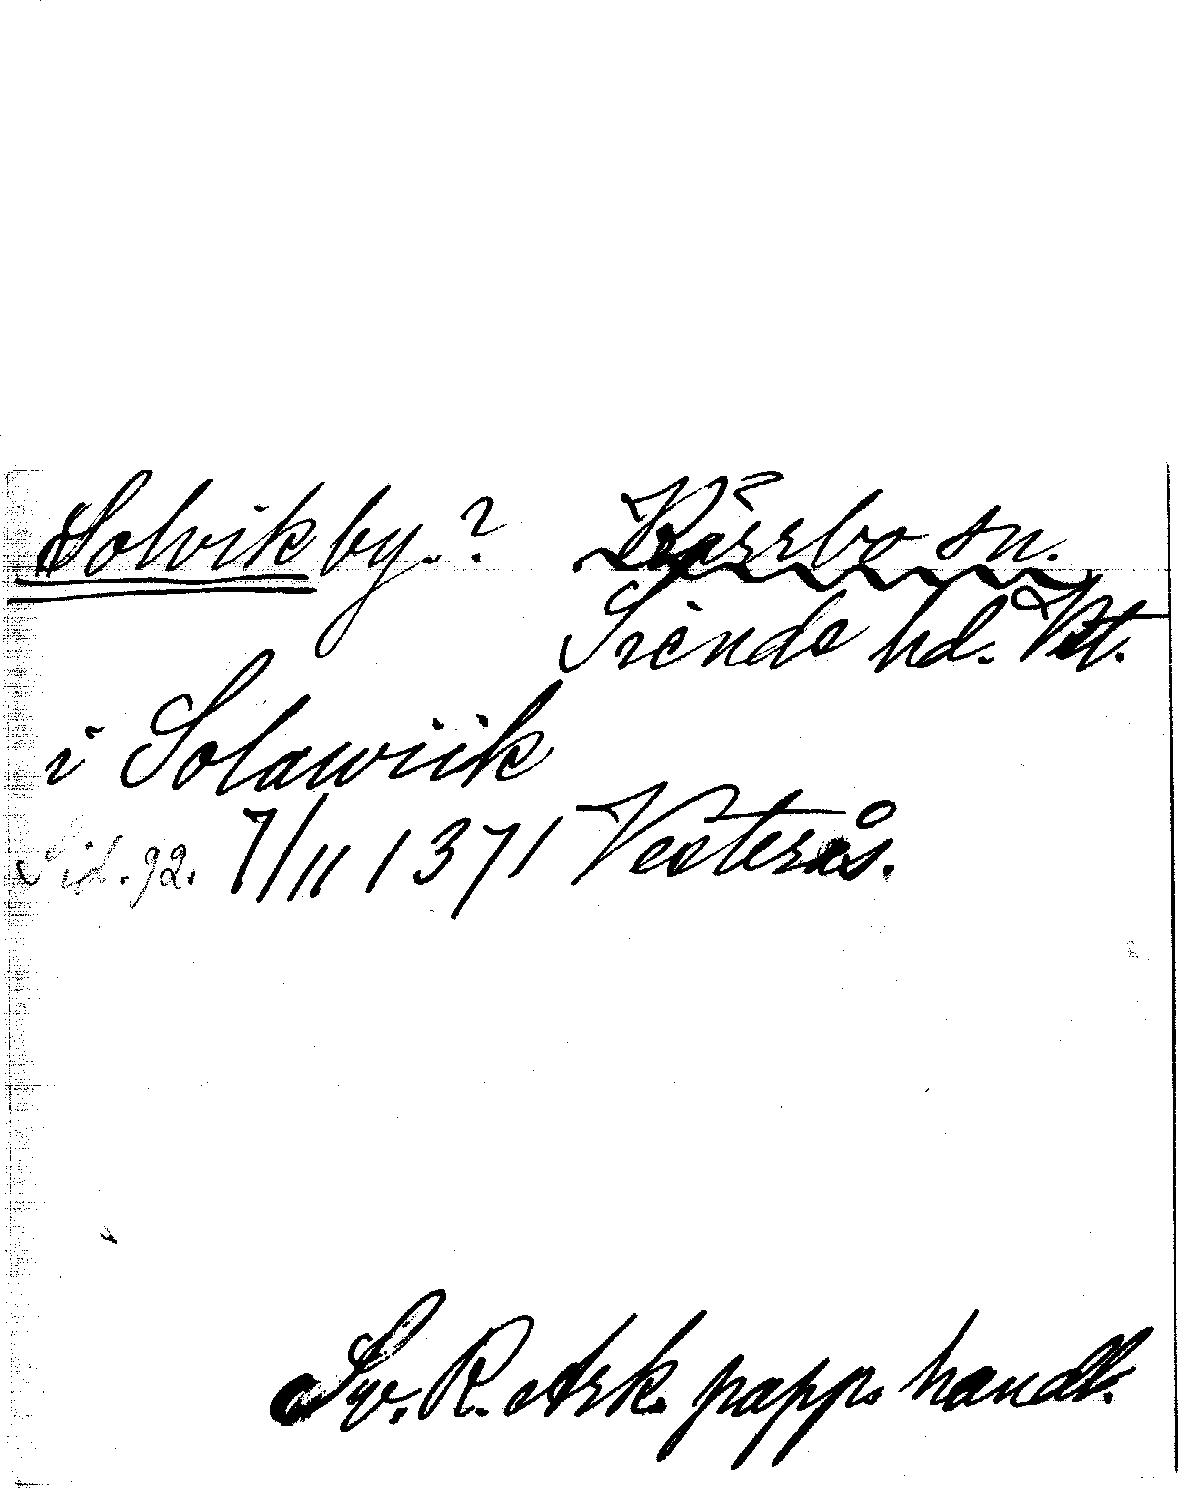 Solvik by.? Kärrbo sn.
Siende hd. Vst.
i Solawiik
Sid. 92. 7/11 1371 Vesterås.
Sv. R. Ark. papp. handl.